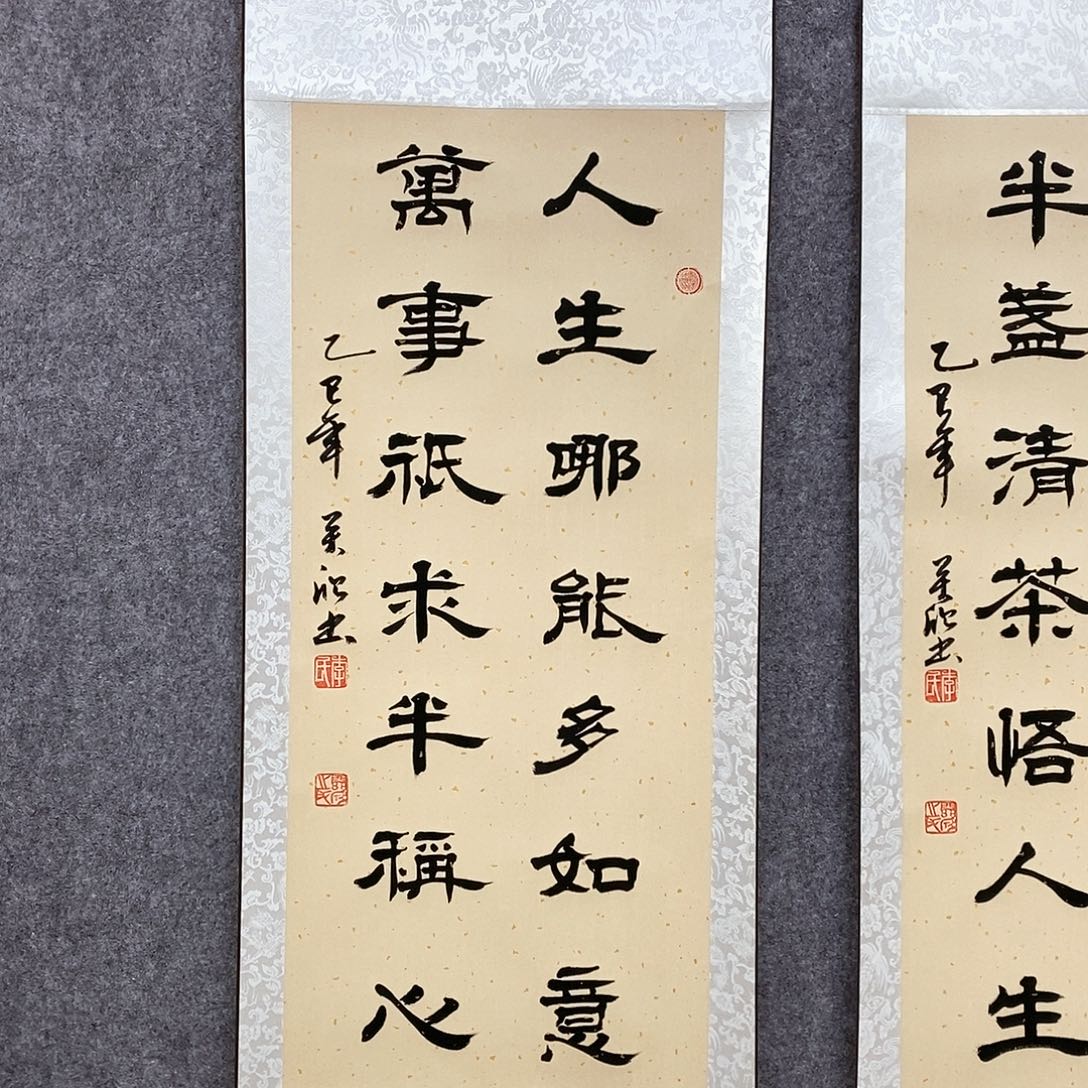 人生哪能多如意
萬事祇求半稱心
乙巳年
書
李氏
半盞清茶悟人生
乙巳年
書
李氏